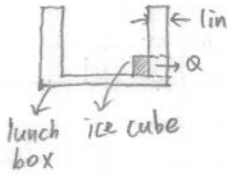 1in
Q
lunch
box
ice cube